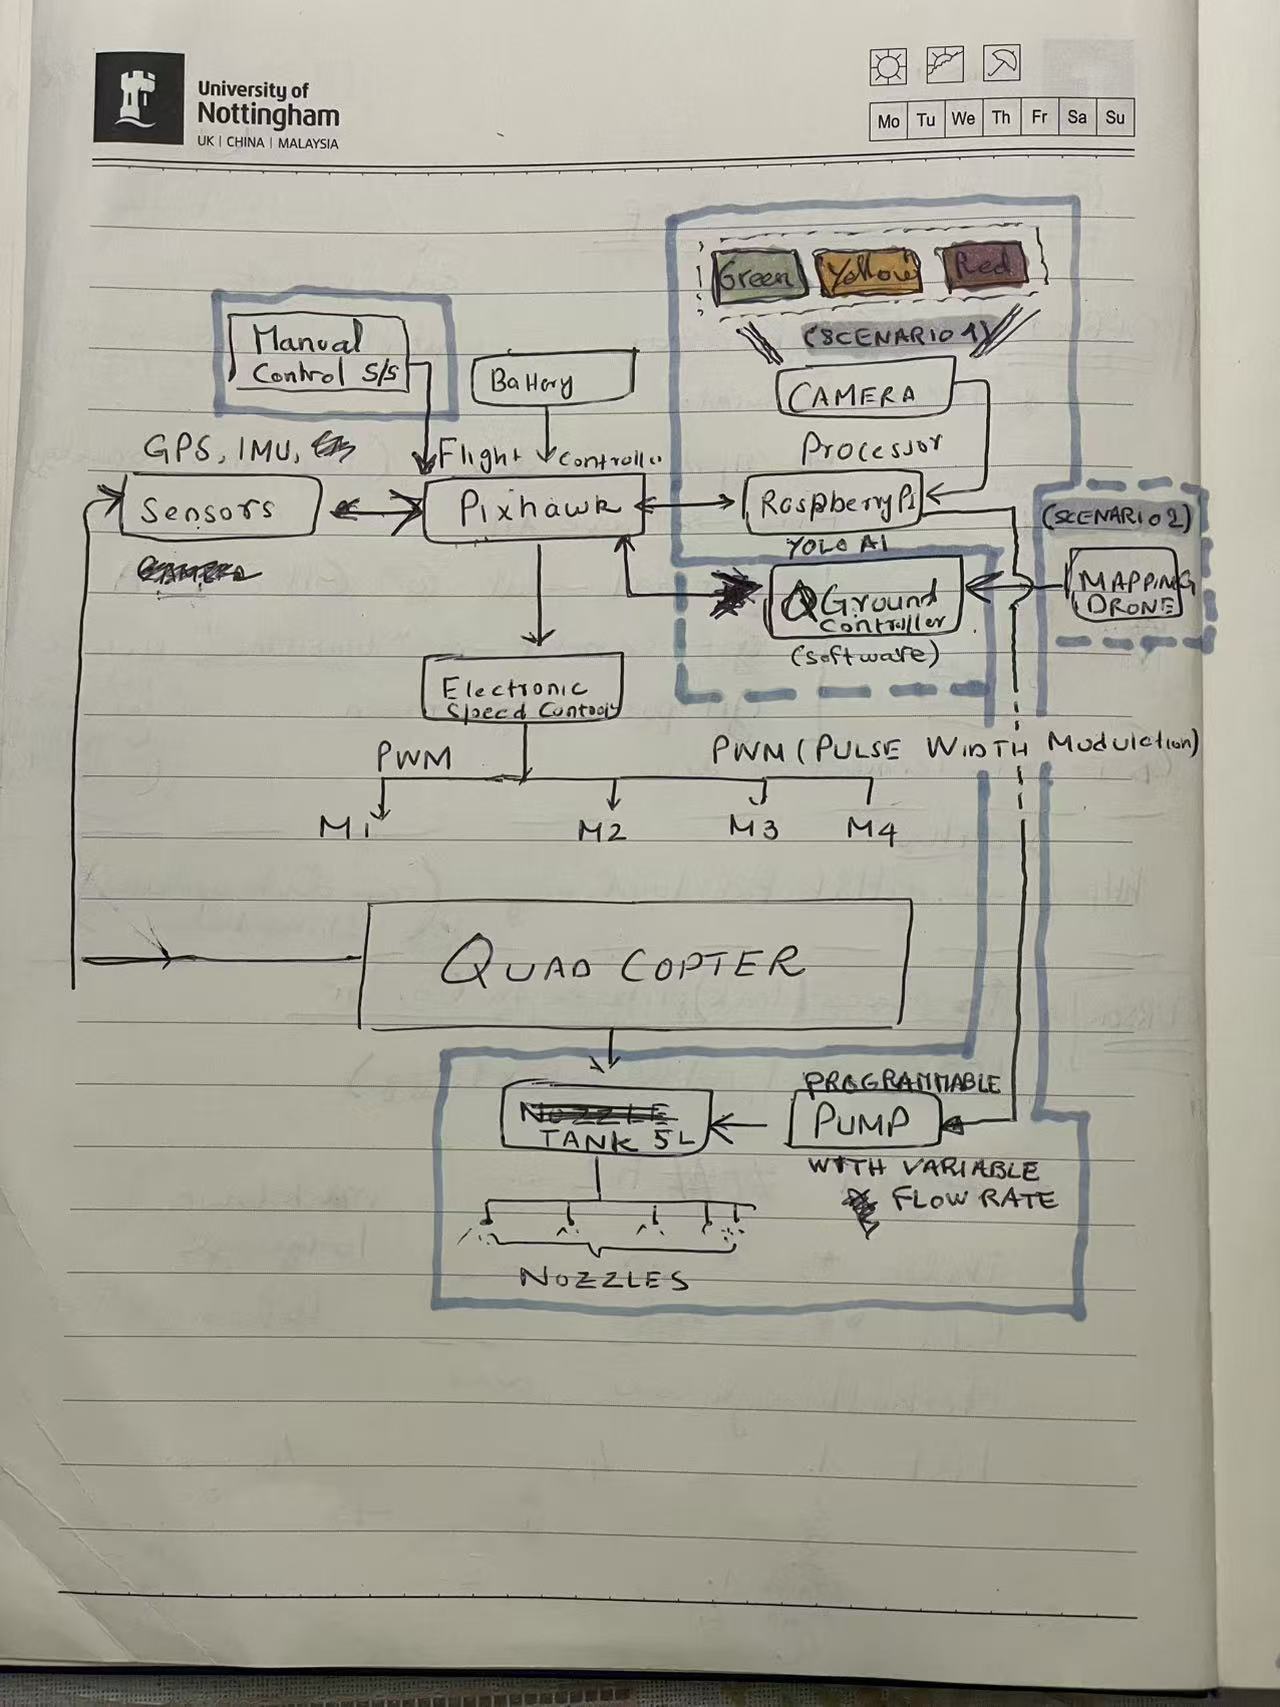 University of
Nottingham
UK | CHINA | MALAYSIA
Mo Tu We Th Fr Sa Su
Green Yellow Red
(SCENARIO 1)
Manual
Control S/S
Battery
CAMERA
GPS, IMU,
Flight Controller
Processor
Sensors
Pixhawk
Raspberry Pi
YOLO AI
(SCENARIO 2)
MAPPING
DRONE
CAMERA
QGround
Controller
(software)
Electronic
Speed
PWM
PWM (PULSE WIDTH Modulation)
M1 M2 M3 M4
QUAD COPTER
NOZZLE
TANK 5L
PROGRAMMABLE
PUMP
WITH VARIABLE
FLOW RATE
NOZZLES